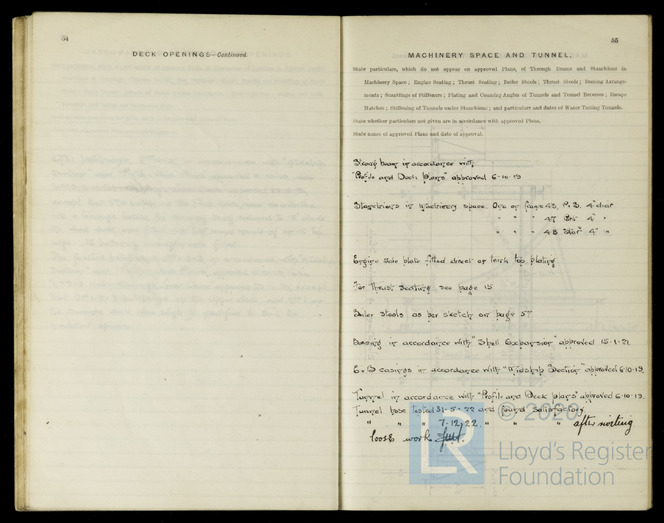 54
DECK OPENINGS—Continued.
55
MACHINERY SPACE AND TUNNEL.
State particulars, which do not appear on approval Plans, of Through Beams and Stanchions in
Machinery Space; Engine Seating; Thrust Seating; Boiler Stools; Thrust Stools; Bossing Arrange-
ments; Scantlings of Stiffeners; Plating and Coaming Angles of Tunnels and Tunnel Recesses; Escape
Hatches; Stiffening of Tunnels under Stanchions; and particulars and dates of Water Testing Tunnels.
State whether particulars not given are in accordance with approved Plans.
State name of approved Plans and date of approval.
Strong beam in accordance with
"Profile and Deck plans" approved 6-10-19
Stanchions in Machinery space. One at frame 43, P.S. 4" diar
" " " 47 4" "
" " " 48 Star 4" "
Engine sole plate fitted direct on tank top plating
For thrust seating see page 15
Boiler stools as per sketch on page 57
Bossing in accordance with "Shell Expansion" approved 15-1-21
E & B casings in accordance with "Midship Section" approved 6-10-19.
Tunnel in accordance with "Profile and Deck plans" approved 6-10-19.
Tunnel hose tested 31-5-22 and found satisfactory
" " " 7-12-22 " " " after riveting
loose work
© 2020
LR
Lloyd's Register
Foundation